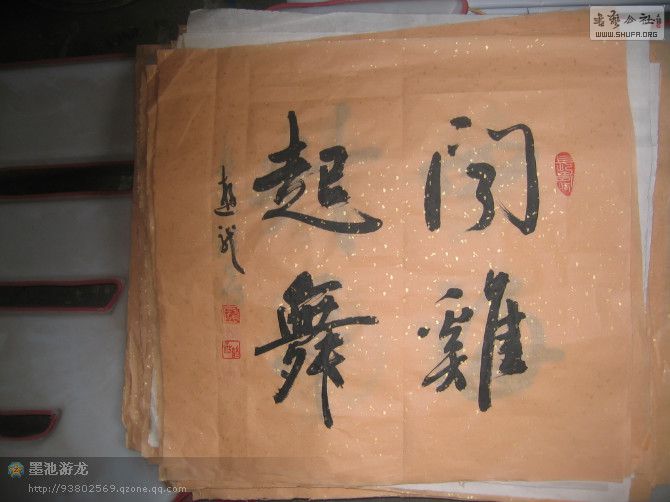 聞雞
起舞
趙
书艺公社
WWW.SHUFA.ORG
墨池游龙
http://93802569.qzone.qq.com